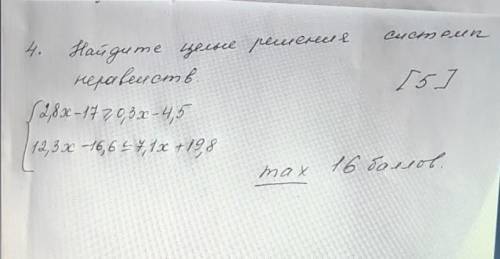 4. Найдите целые решения системы
неравенств. [5]
{2,8x-17⩾0,3x-4,5
12,3x-16,6≤7,1x+19,8
max 16 баллов.